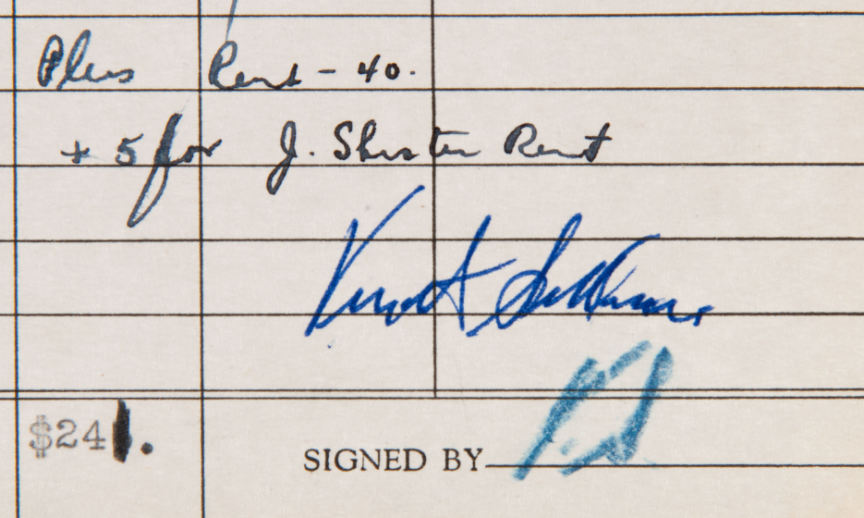 Plus Rent - 40.
+ 5 for J. Shuster Rent
$241.
SIGNED BY